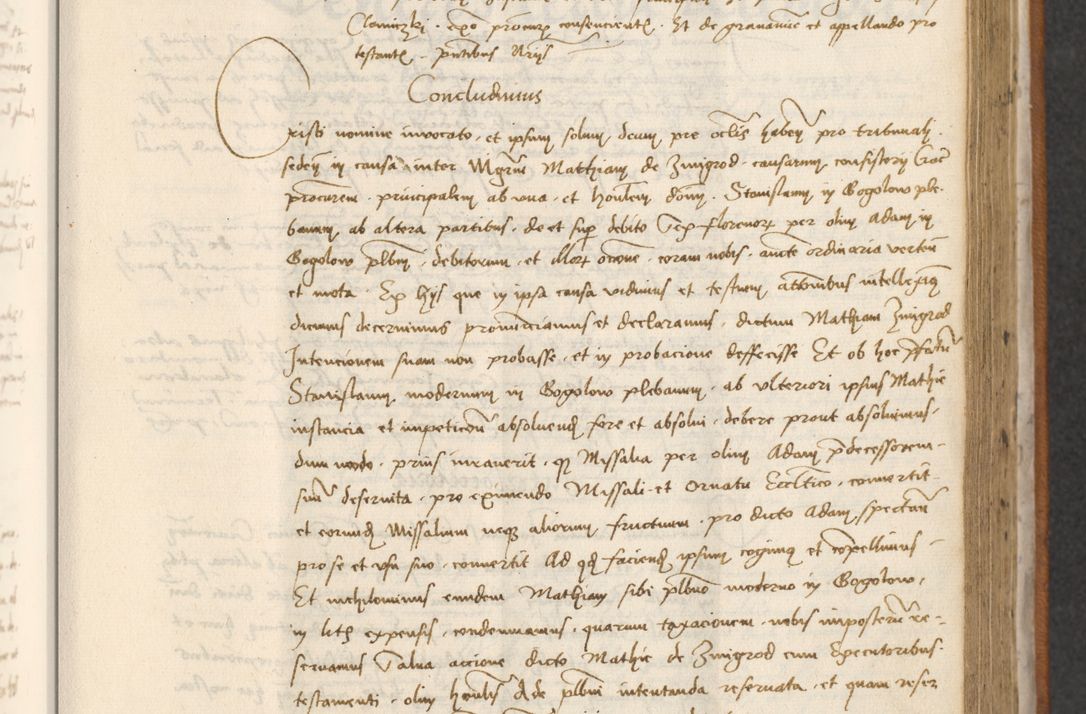 Clominzki, expo procurm consencientem. Et de gravamine et appellando pro
testantem. pntibus Nrijs
Concludimus
Cristi nomine invocato. et ipsum solum deum pre oclis habens pro tribunali.
seden in causa inter Mgrum Mathiam de Zmigrod causarum consistorij Grac
procurem. principalem ab vna. et honlem domi. Stanislaum in Gogolow ple-
banum ab altera partibus. de et sup debito florenorum per olim Adam in
Gogolow plbum. debitorum. et illor occne. coram nobis. aucte ordinaria verten
et mota. Ex hijs que in ipsa causa vidimus et testium attonibus intelleximus
dicimus decernimus pronunciamus et declaramus. dictum Mathiam Zmigrod
Intencionem suam non probasse. et in probacione deffecisse Et ob hoc pfatum
Stanislaum modernum in Gogolow plebanum. ab vlteriori ipsius Mathie
instancia et impeticone absoluend fore et absolui. debere prout absoluimus.
dum modo. prius iuraverit. qz Missalia per olim Adam pdecessorem
suum deservita. pro eximendo Missali et Ornatu Eccltico. convertit
et eorund Missalium neqz aliorum fructuum. pro dicto Adam spectan
pro se et vsu suo. convertit Ad qd faciend ipsum cogimus et compellimus
Et nichilominus eundem Mathiam sibi plbno moderno in Gogolow.
in litis expensis. condemnamus. quarum taxacionem. nobis imposterum re-
servamus Salva accione dicto Mathie de Zmigrod cum Executoribus.
testamenti. olim honlis Ade plbni intentanda reservata. et quam reser